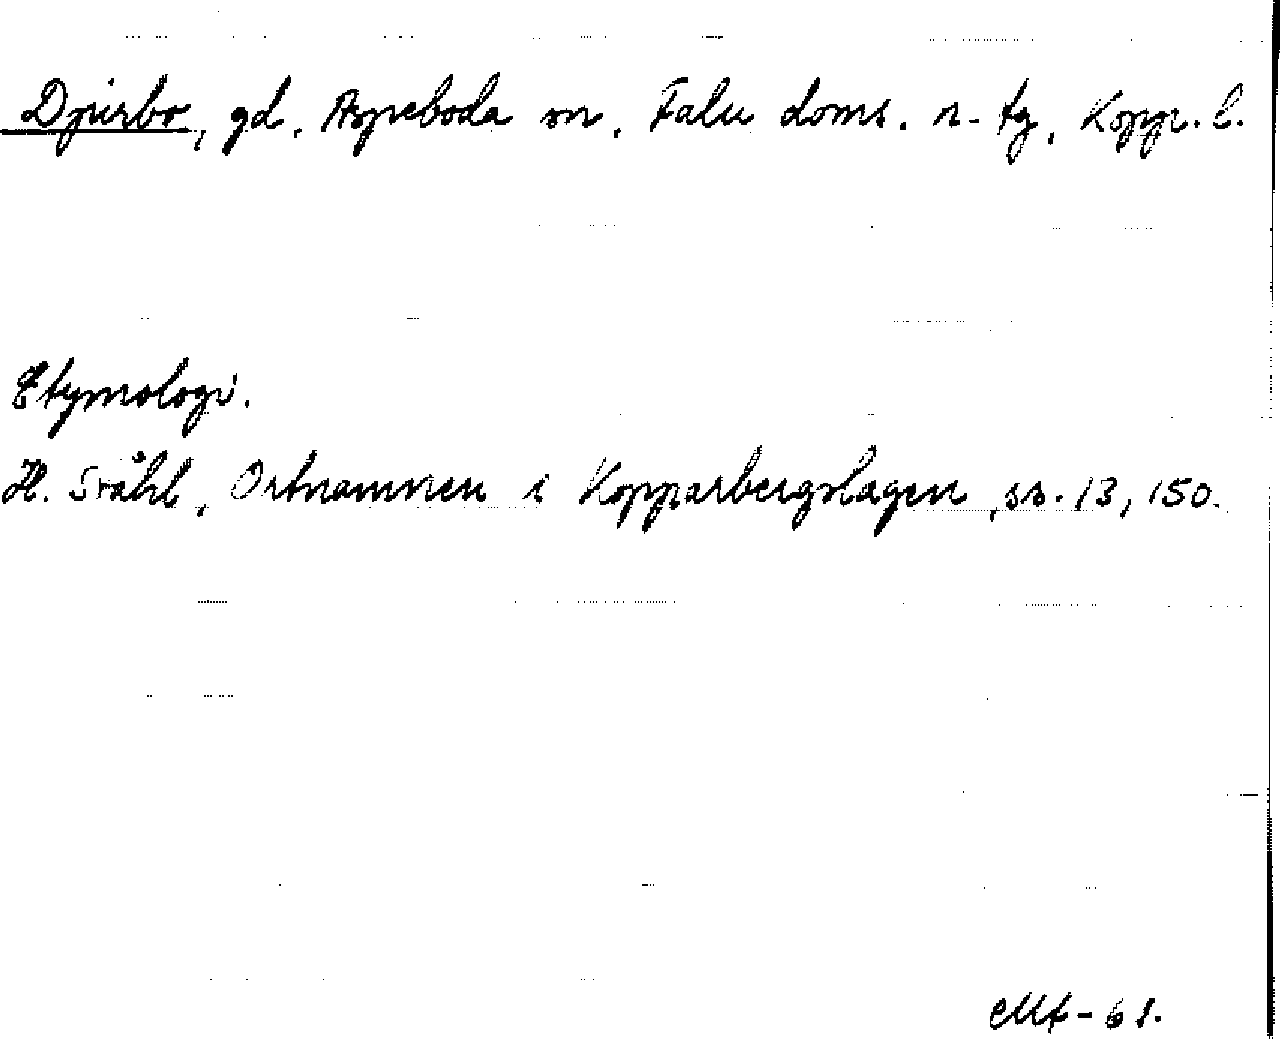 Djursbo, gd, Aspeboda sn, Falu doms. n-tg, Kopp. l.
Etymologi.
H. Ståhl, Ortnamnen i Kopparbergslagen, ss. 13, 150.